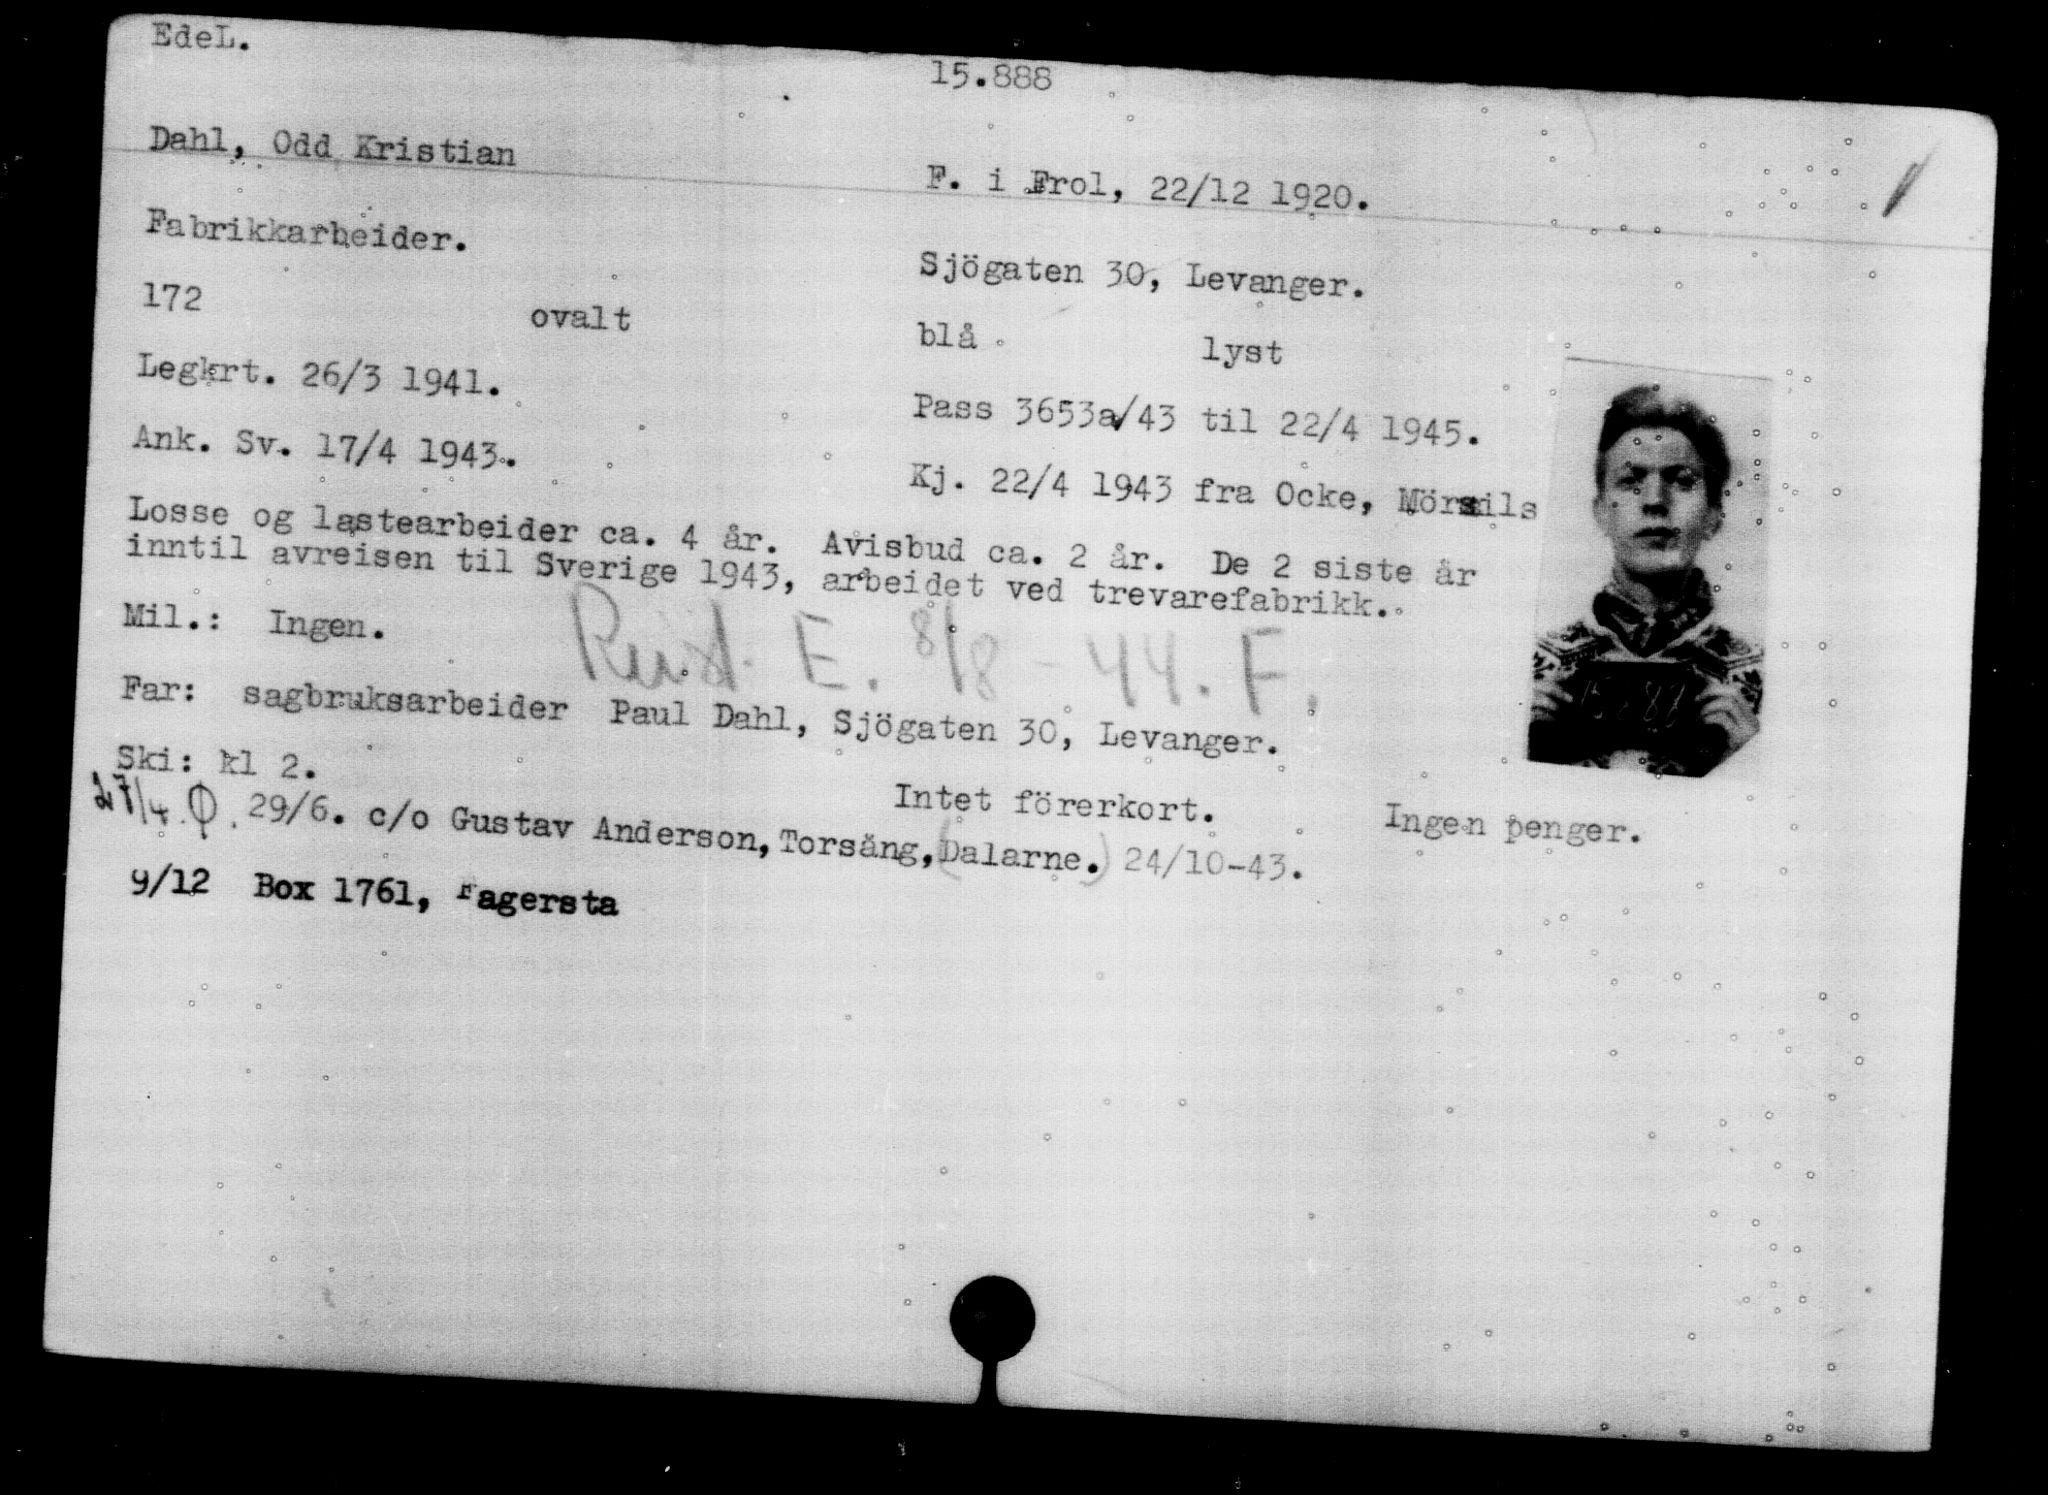 EdeL.
15.888
Dahl, Odd Kristian
F. i Frol, 22/12 1920.
Fabrikkarbeider.
Sjögaten 30, Levanger.
172 ovalt blå lyst
Legkrt. 26/3 1941.
Pass 3653a/43 til 22/4 1945.
Ank. Sv. 17/4 1943.
Kj. 22/4 1943 fra Ocke, Mörsils
Losse og lastearbeider ca. 4 år. Avisbud ca. 2 år. De 2 siste år
inntil avreisen til Sverige 1943, arbeidet ved trevarefabrikk.
Mil.: Ingen.
E. 8/8 - 44. F.
Far: sagbruksarbeider Paul Dahl, Sjögaten 30, Levanger.
Ski: kl 2.
Intet förerkort. Ingen penger.
27/4. 29/6. c/o Gustav Anderson, Torsång, (Dalarne.) 24/10-43.
9/12 Box 1761, Fagersta